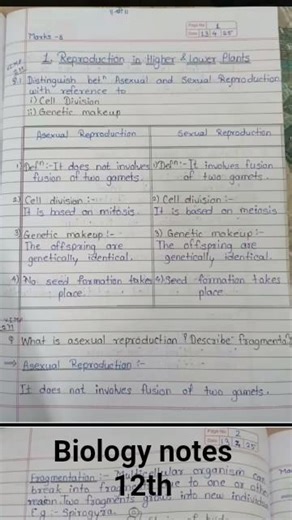 Page No. 1
Date 13 4 25
Marks -2
1. Reproduction in Higher & Lower Plants
Q.1 Distinguish betn Asexual and Sexual Reproduction
with reference to
i) Cell Division
ii) Genetic makeup
Asexual Reproduction
Sexual Reproduction
1) Defn :- It does not involves
fusion of two gamets.
1) Defn :- It involves fusion
of two gamets.
2) Cell division :-
It is based on mitosis.
2) Cell division :-
It is based on meiosis
3) Genetic makeup :-
The offspring are
genetically identical.
3) Genetic makeup :-
The offspring are
genetically identical.
4) No seed formation takes
place.
4) Seed formation takes
place.
Q What is asexual reproduction ? Describe fragmenta
Asexual Reproduction :-
It does not involves fusion of two gamets.
Biology notes
12th
Fragmentation :- Multicellular organism can
break into due to one or other
reason. Two fragments into new individu
E.g :- Spirogyra.